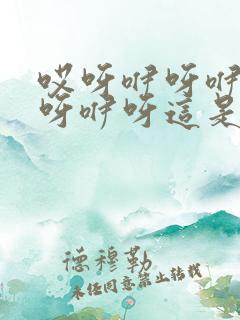 哎呀咿呀咿
呀咿呀這是
德穆勒
未經同意禁止轉載